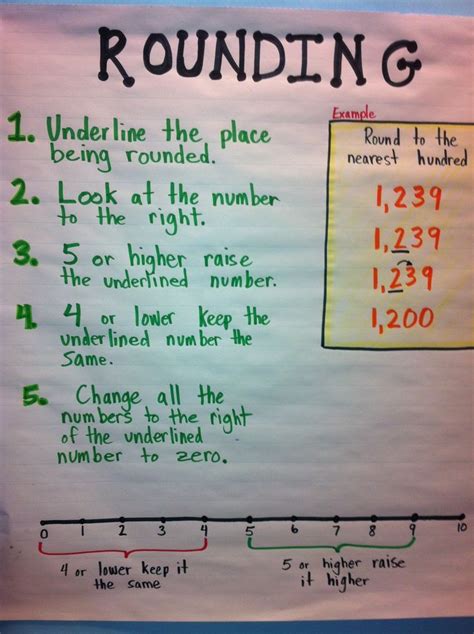 ROUNDING
1. Underline the place
being rounded.
2. Look at the number
to the right.
3. 5 or higher raise
the underlined number.
4. 4 or lower keep the
underlined number the
same.
5. Change all the
numbers to the right
of the underlined
number to zero.
Example
Round to the
nearest hundred
1,239
1,239
1,239
1,200
0 1 2 3 4 5 6 7 8 9 10
4 or lower keep it
the same
5 or higher raise
it higher